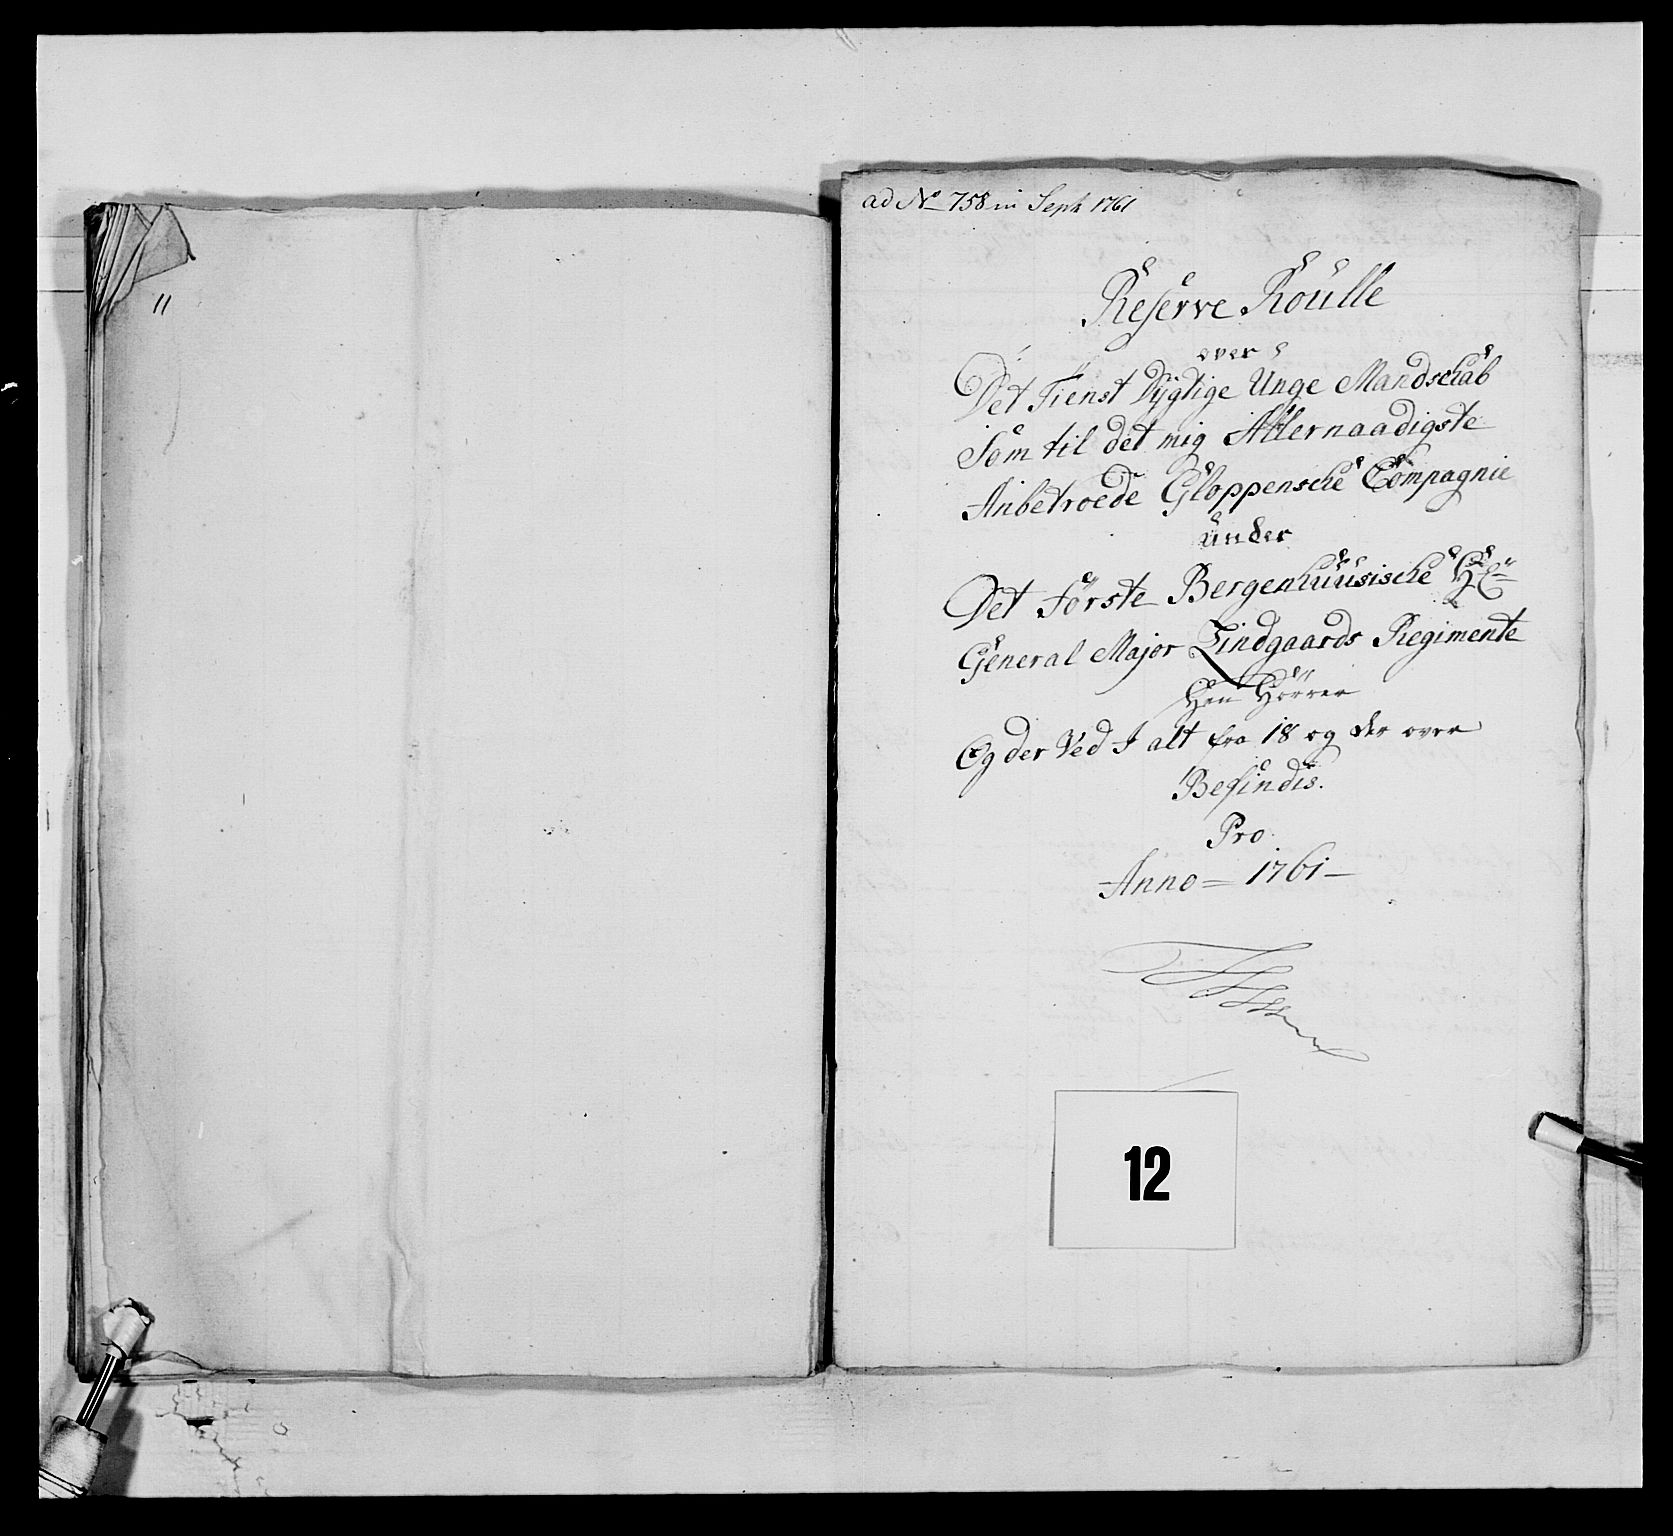 11
ad No 758 in Septr 1761
Reserve Roulle
over
Det Tienst Dÿgtige Unge Mandschab
Som til det mig Allernaadigste
Anbetroede Gloppensche Compagnie
ünder
Det Förste Bergenhuusische
General Major Zindgaards Regimente
Hen Hörrer
Og der Ved I alt fra 18 og der over
Befindis.
Pro
Anno = 1761 -
12